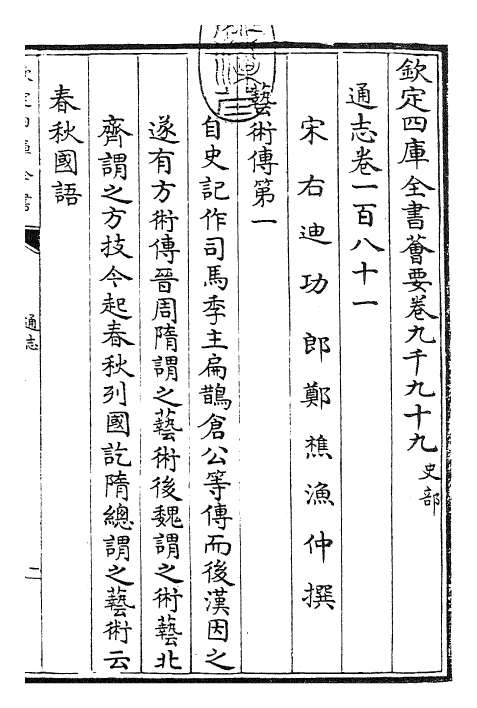 欽定四庫全書薈要卷九千九十九 史部
通志卷一百八十一
宋右迪功郎鄭樵漁仲撰
藝術傳第一
自史記作司馬季主扁鵲倉公等傳而後漢因之
遂有方術傳晉周隋謂之藝術後魏謂之術藝北
齊謂之方技今起春秋列國訖隋總謂之藝術云
春秋國語
通志